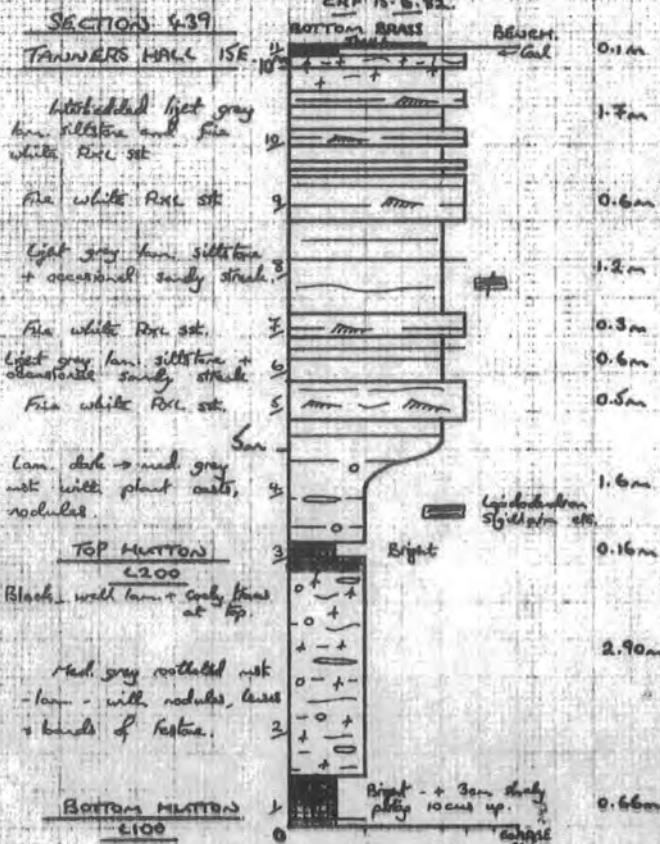 SECTION 439
15.6.82.
TANNERS HALL 15E
BOTTOM BRASS
THILL
BENCH.
Coal
0.1m
11
10
Interbedded light grey
lam. siltstone and fine
white RXL sst
1.7m
10
Fine white RXL sst
9
0.6m
Light grey lam. siltstone
+ occasional sandy streak.
8
1.2m
Fine white RXL sst.
7
0.3m
Light grey lam. siltstone +
occasional sandy streak
6
0.6m
Fine white RXL sst.
5
0.5m
5m
Lam. dark → med. grey
mst with plant casts,
nodules.
4
1.6m
Lepidodendron
Sigillaria etc.
TOP HUTTON
L200
3
Bright
0.16m
Black well lam. + coaly traces
at top.
2.90m
Med. grey rootleted mst
- lam - with nodules, lenses
+ bands of Festone.
2
Bright - + 3cm shaly
10cms up.
BOTTOM HUTTON
L100
1
0.66m
0